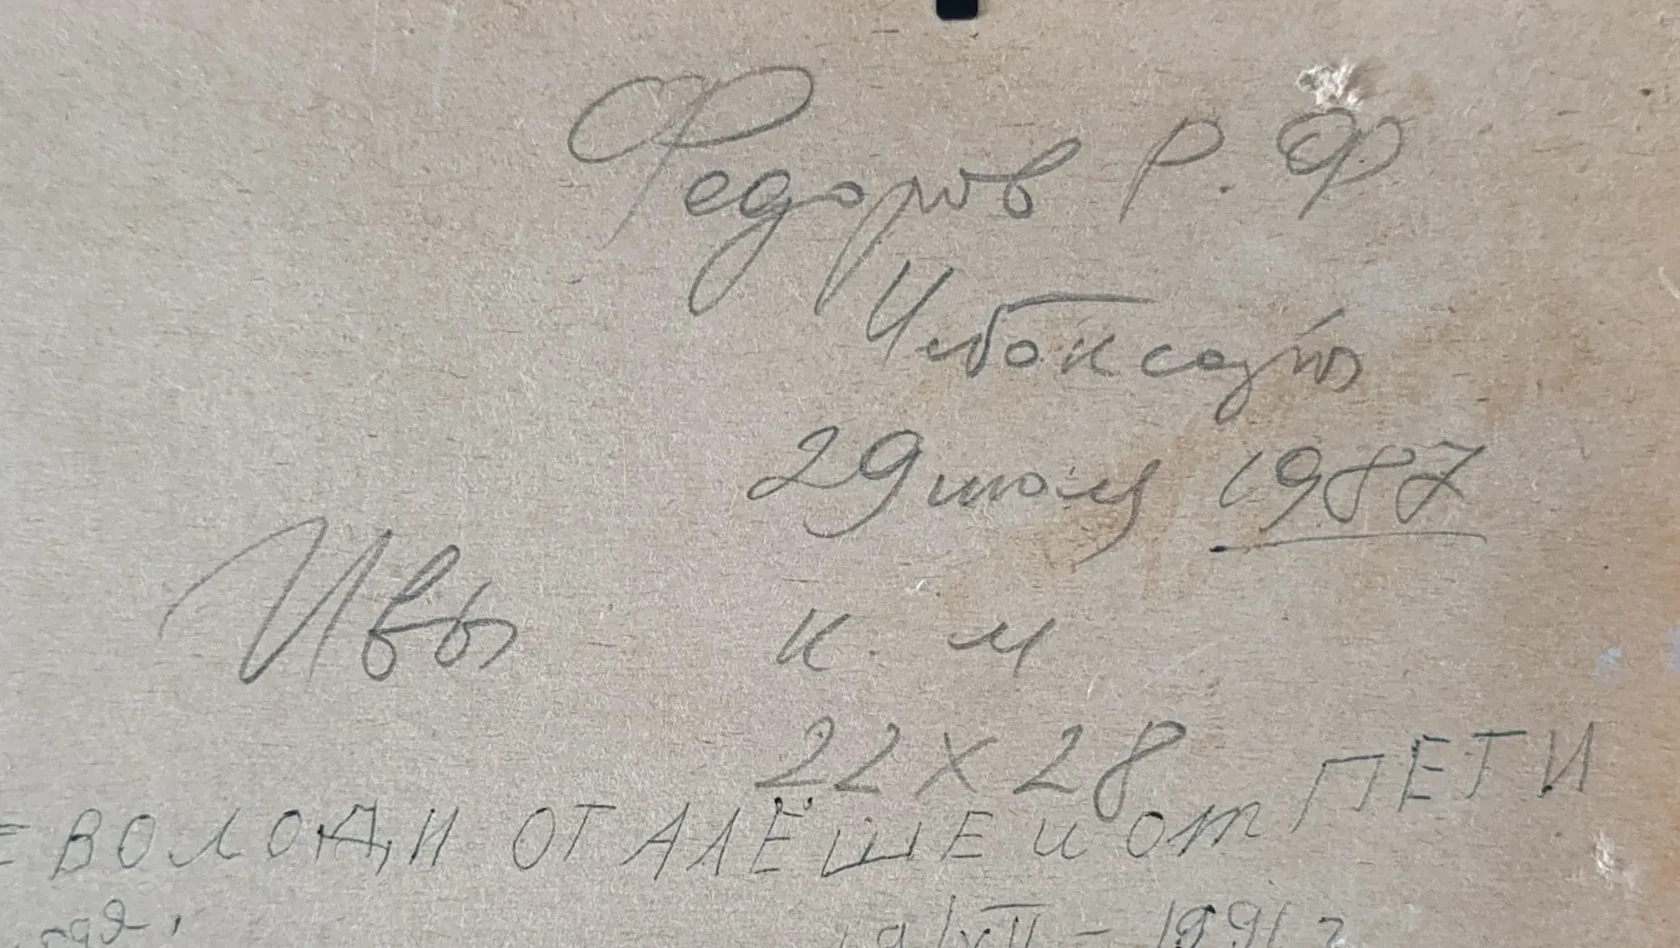 Федоров Р. Ф
Чебоксары
29 июля 1987
Ивы к. м
22 х 28
ВОЛОДИ ОТ АЛЁШЕ и от ПЕТИ
VII – 1991 г